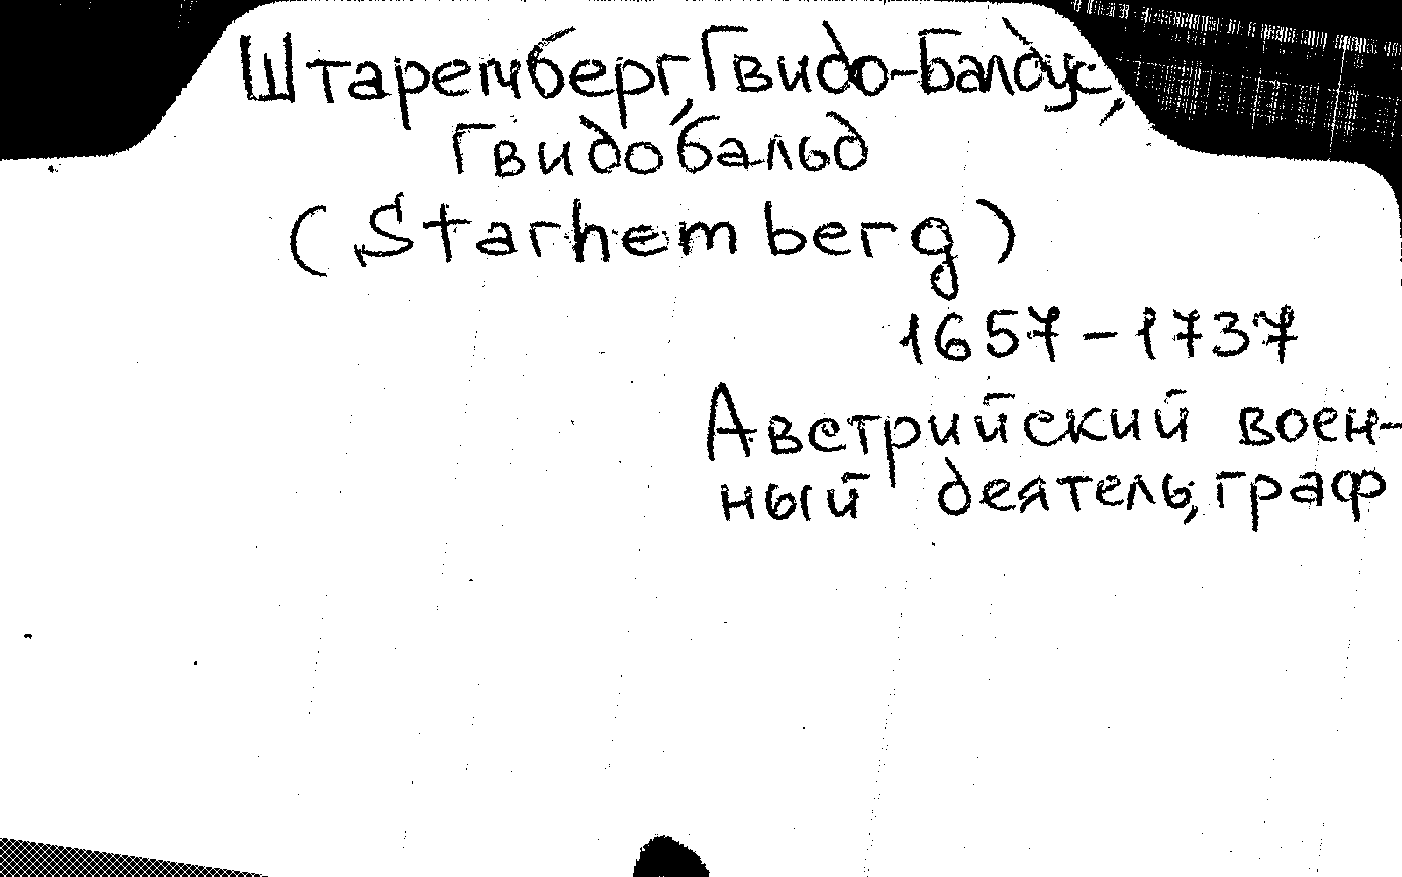 Штаремберг, Гвидо-Балдус,
Гвидобальд
(Starhemberg)
1657-1737
Австрийский воен-
ный деятель, граф